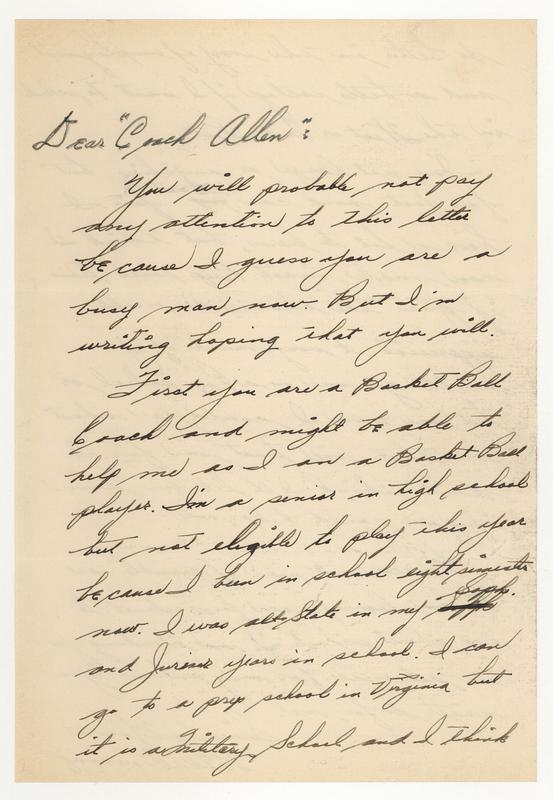 Dear "Coach Allen":
You will probable not pay
any attention to this letter
because I guess you are a
busy man now. But I'm
writing hoping that you will.
First you are a Basket Ball
Coach and might be able to
help me as I am a Basket Ball
player. I'm a senior in high school
but not eligible to play this year
because I been in school eight simester
now. I was all-State in my Soph.
and Junior years in school. I can
go to a prep school in Virginia but
it is a Military School and I think